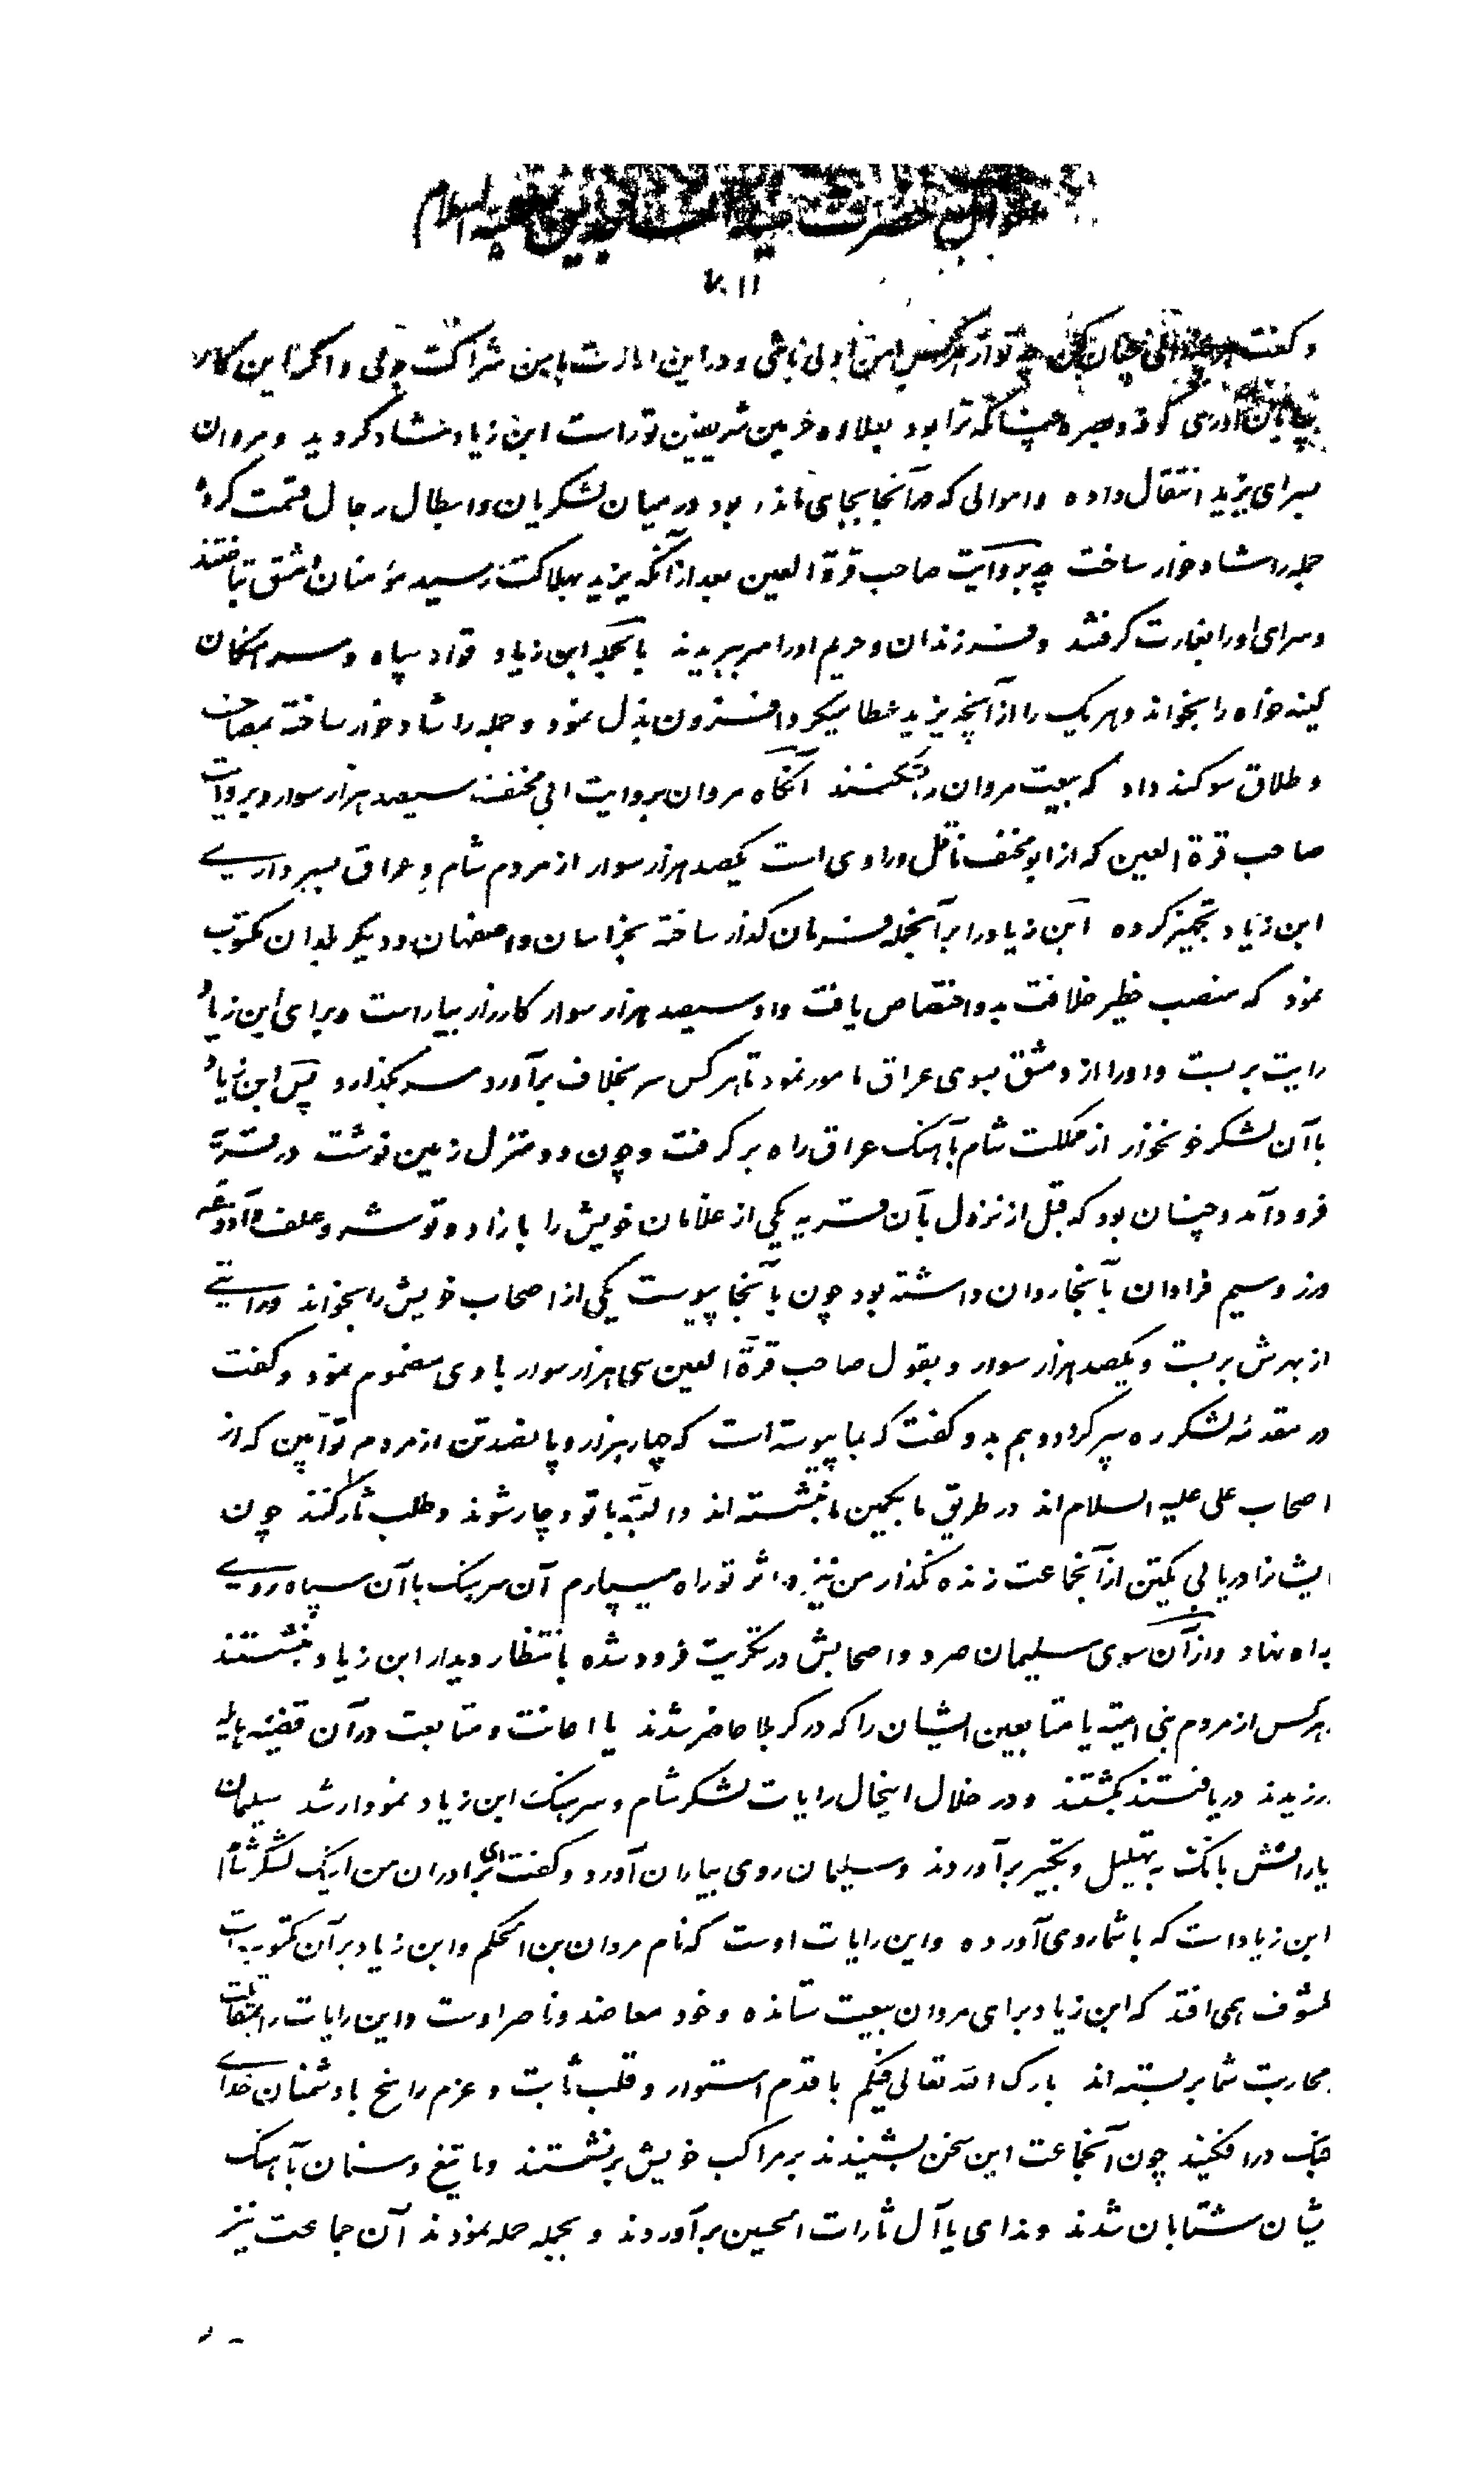 احوال حضرت سید الساجدین علیه السلام
و گفت چنان کن تو از هر کس باین اولی باشی و در این امارت با من شراکت جوئی و اگر این کار
بپایان آوری کوفه و بصره چنانکه ترا بود بعلاوه حرمین شریفین تو راست ابن زیاد شاد گردید و مروان
بسرای یزید انتقال داده و اموالی که در آنجا بجای مانده بود در میان لشکریان و ابطال رجال قسمت کرد
جمله را شاد خوار ساخت چه بروایت صاحب قرة العین بعد از آنکه یزید بهلاکت رسید مؤمنان دمشق بتاختند
و سرای او را بغارت گرفتند و فرزندان و حریم او را سر ببریدند بالجمله ابن زیاد قواد سپاه و سرهنگان
کینه خواه را بخواند و هر یک را از آنچه یزید عطا میکرد افزون بذل نمود و جمله را شاد خوار ساخته بمصاحف
و طلاق سوگند داد که بیعت مروان را نشکنند آنگاه مروان بروایت ابی مخنف سیصد هزار سوار و بروایت
صاحب قرة العین که از ابو مخنف ناقل و راوی است یکصد هزار سوار از مردم شام و عراق بسرداری
ابن زیاد تجهیز کرده ابن زیاد را بر آنجمله فرمان گذار ساخته بخراسان و اصفهان و دیگر بلدان مکتوب
نمود که منصب خطیر خلافت بدو اختصاص یافت و او سیصد هزار سوار کارزار بیاراست و برای ابن زیاد
رایت بر بست و او را از دمشق بسوی عراق مامور نمود تا هر کس سر بخلاف برآورد سر بگذارد پس ابن زیاد
با آن لشکر خونخوار از مملکت شام بآهنگ عراق راه بر گرفت و چون دو منزل زمین نوشت در قریه
فرود آمد و چنان بود که قبل از نزول بآن قریه یکی از غلامان خویش را با زاد و توشه و علف و آذوغه
و زر و سیم فراوان بآنجا روان داشته بود چون بآنجا پیوست یکی از اصحاب خویش را بخواند و رایتی
از بهرش بر بست و یکصد هزار سوار و بقول صاحب قرة العین سی هزار سوار با وی مضموم نمود و گفت
در مقدمه لشکر ره سپر گرد و هم بدو گفت که بما پیوسته است که چهار هزار و پانصد تن از مردم توابین که از
اصحاب علی علیه السلام اند در طریق ما بکمین ما نشسته اند و البته با تو دچار شوند و طلب ثار کنند چون
ایشان را دریابی یکتن از آنجماعت زنده نگذار من نیز در اثر تو راه میسپارم آن سرهنگ با آن سپاه روی
براه نهاد و از آن سوی سلیمان صرد و اصحابش در تکریت فرود شده بانتظار دیدار ابن زیاد بنشستند
هر کس از مردم بنی امیه یا متابعین ایشان را که در کربلا حاضر شدند یا اعانت و متابعت در آن قضیه هایله
ورزیدند دریافتند بکشتند و در خلال اینحال رایات لشکر شام و سرهنگ ابن زیاد نمودار شد سلیمان
یارانش بانگ بتهلیل و تکبیر برآوردند و سلیمان روی بیاران آورد و گفت ای برادران من اینک لشکر شام
ابن زیاد است که با شما روی آورده و این رایات اوست که نام مروان بن الحکم و ابن زیاد بر آن مکتوب است
مکشوف همی افتد که ابن زیاد برای مروان بیعت ستانده و خود معاضد و ناصر اوست و این رایات را بمقاتلت
محاربت شما بر بسته اند بارک الله تعالی فیکم با قدم استوار و قلب ثابت و عزم راسخ با دشمنان خدای
جنگ در افکنید چون آنجماعت این سخن بشنیدند بر مراکب خویش بر نشستند و با تیغ و سنان بآهنگ
یشان شتابان شدند و ندای یا آل ثارات الحسین برآوردند و بجمله حمله نمودند آن جماعت نیز